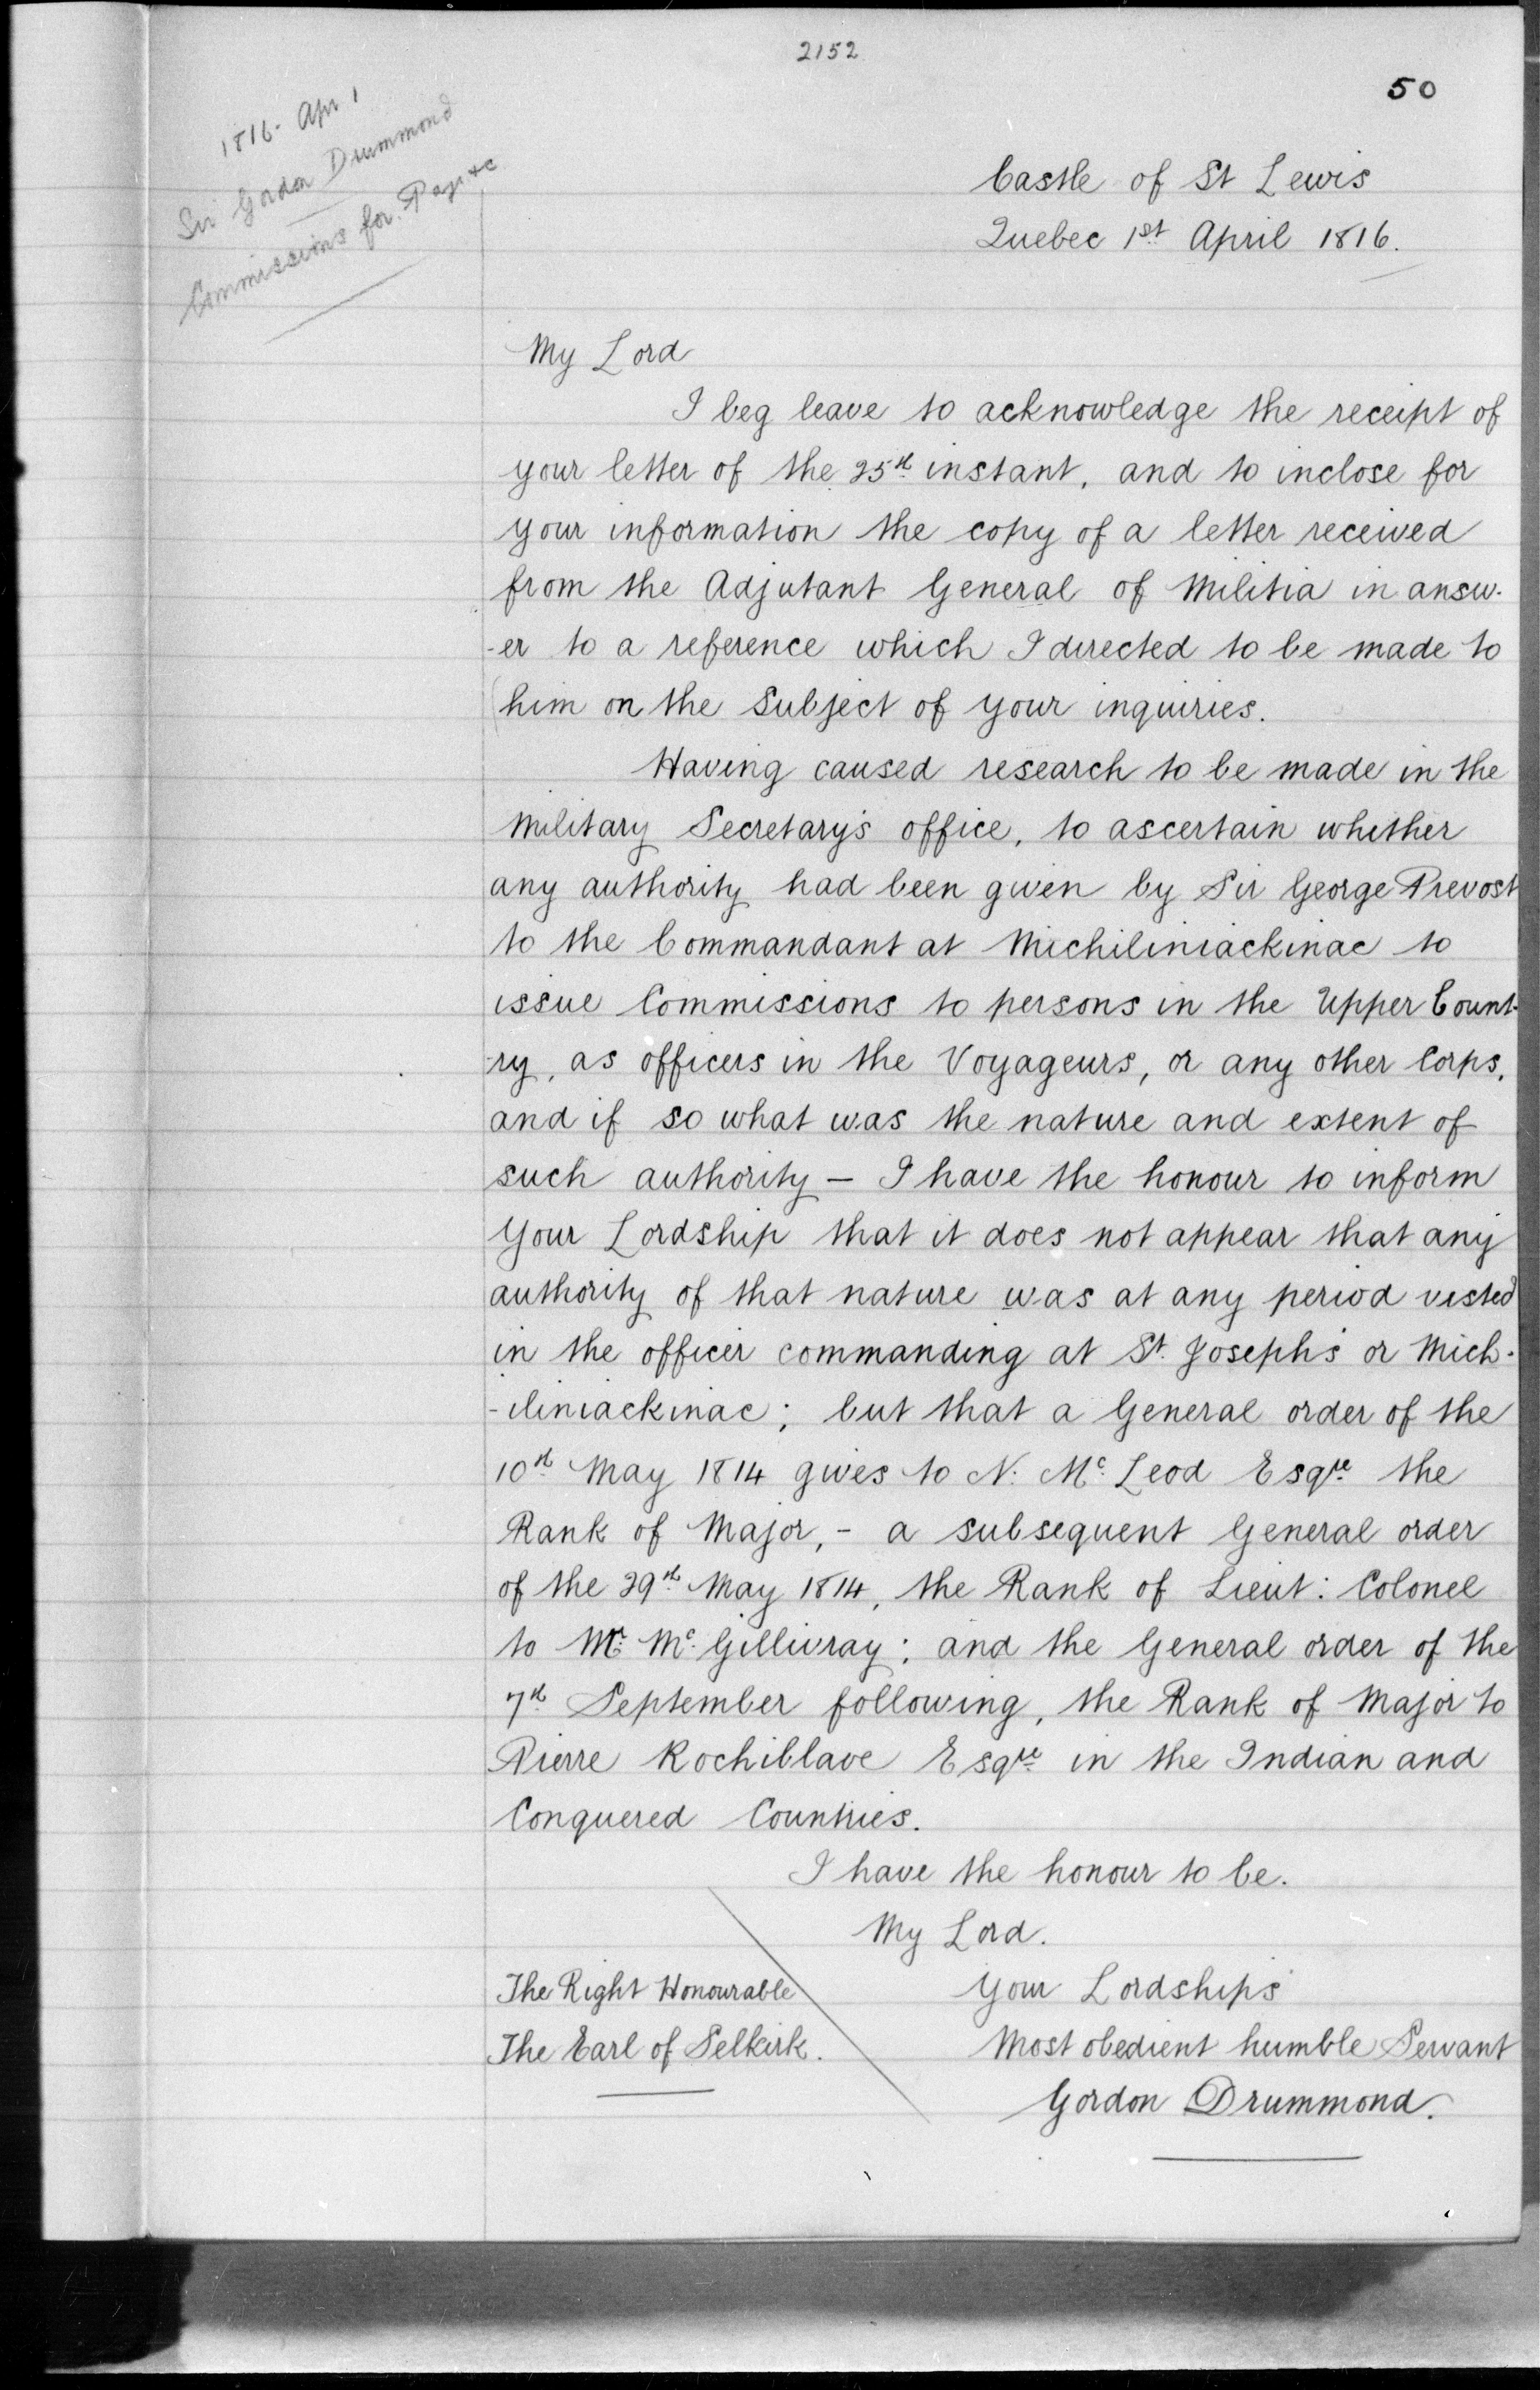 2152
50
1816. Apr 1
Sir Gordon Drummond
Commissions for Pays &c
Castle of St Lewis
Quebec 1st April 1816.
My Lord
I beg leave to acknowledge the receipt of
your letter of the 25th instant, and to inclose for
your information the copy of a letter received
from the Adjutant General of Militia in answ-
-er to a reference which I directed to be made to
him on the Subject of your inquiries.
Having caused research to be made in the
Military Secretary's office, to ascertain whether
any authority had been given by Sir George Prevost
to the Commandant at Michiliniackinac to
issue Commissions to persons in the Upper Count-
-ry, as officers in the Voyageurs, or any other Corps,
and if so what was the nature and extent of
such authority – I have the honour to inform
Your Lordship that it does not appear that any
authority of that nature was at any period vested
in the officer commanding at St. Joseph's or Mich-
-iliniackinac; but that a General order of the
10th May 1814 gives to N. Mc Leod Esqre the
Rank of Major, - a subsequent General order
of the 29th May 1814, the Rank of Lieut: Colonel
to Mr. Mc Gillivray; and the General order of the
7th September following, the Rank of Major to
Pierre Rochiblave Esqre in the Indian and
Conquered Countries.
I have the honour to be.
My Lord.
Your Lordships
Most obedient humble Servant
Gordon Drummond.
The Right Honourable
The Earl of Selkirk.